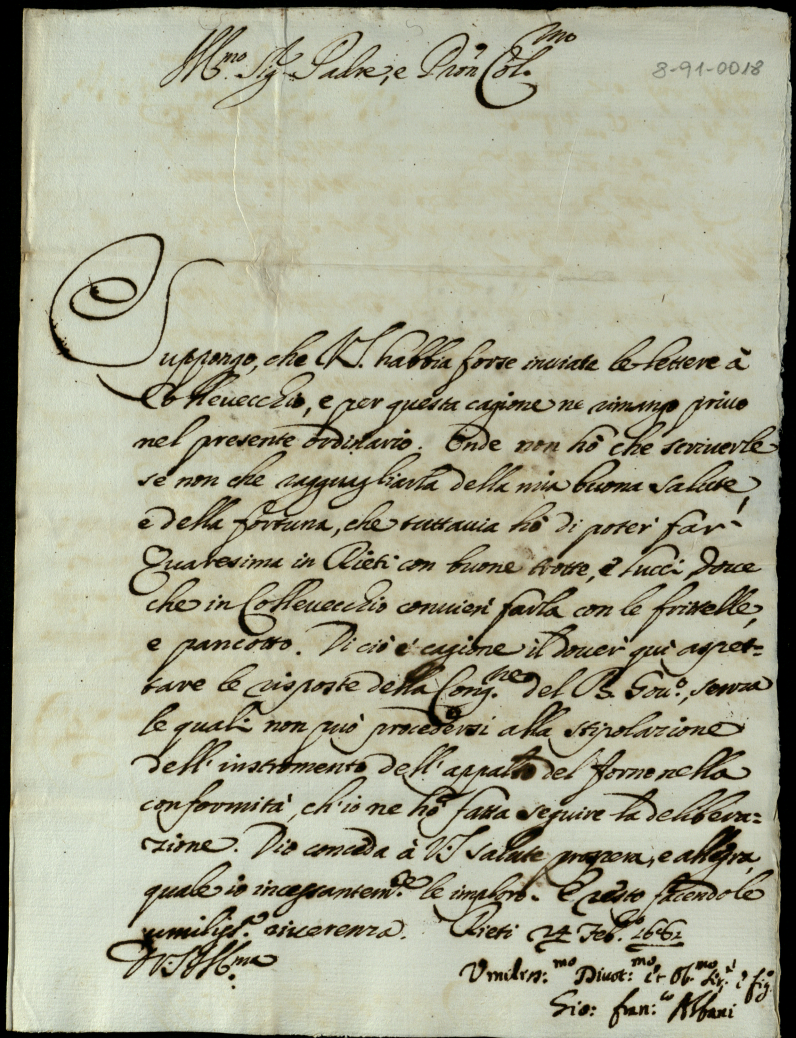 Ill.mo Sig.r Padre, e Pron Col.mo
8-91-0018
Suppongo, che V.S. habbia forse inviate le lettere à
Collevecchio, e per questa cagione ne rimango privo
nel presente ordinario. Onde non hò che scriverle
se non che ragguagliarla della mia buona salute,
e della fortuna, che tuttavia hò di poter far
Quaresima in Rieti con buone trotte, e lucci, dove
che in Collevecchio convieni farla con le frittelle,
e pancotto. Di ciò è cagione il dover quì aspet=
tare le risposte della Cong.ne del B. Gou.o, senza
le quali non può procedersi alla stipolazione
dell'instromento dell'appalto del forno nella
conformità, ch'io ne hò fatta seguire la delibera=
zione. Dio conceda à V.S. salute prospera, e allegra,
quale io incessantem.te le imploro. E resto facendole
umiliss.a riverenza. Rieti 24 Feb.o
V.S. Ill.ma
Umiliss.mo Divot.mo et Ob.mo Ser.e e fig.o
Gio: Fran.co Albani